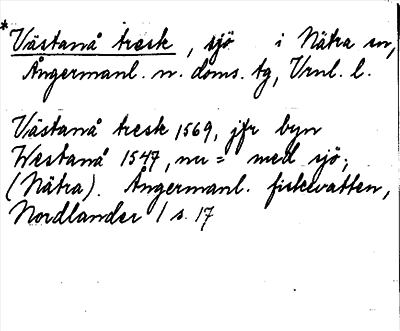 * Västanå träsk, sjö i Nätra sn,
Ångermanl. n. doms. tg, Vrnl. l.
Västanå träsk 1569, jfr byn
Westanå 1547, nu = med sjö;
(Nätra). Ångermanl. fiskevatten,
Nordlander / s. 17